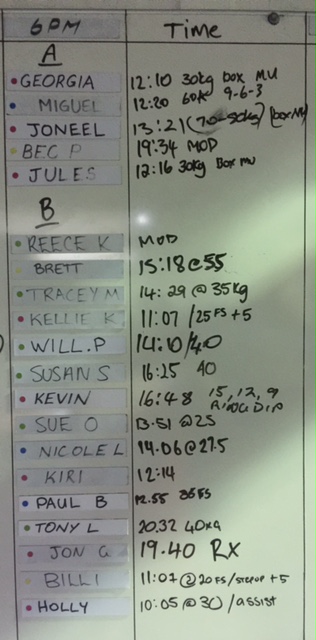 6PM Time
A
GEORGIA 12:10 30kg box MU
MIGUEL 12:20 60K 9-6-3
JONEEL 13:21 (70-50kg) (box MU)
BEC P 19:34 MOD
JULES 12:16 30kg Box MU
B
REECE K MOD
BRETT 15:18@55
TRACEY M 14:29 @ 35kg
KELLIE K 11:07 /25FS +5
WILL.P 14:10/40
SUSAN S 16:25 40
KEVIN 16:48 15, 12, 9
RING DIP
SUE O 13.51 @25
NICOLE L 14.06@27.5
KIRI 12:14
PAUL B 12.55 35FS
TONY L 20.32 40KG
JON G 19.40 RX
BILLI 11:07 @ 20FS/stepup +5
HOLLY 10:05 @ 30 /assist